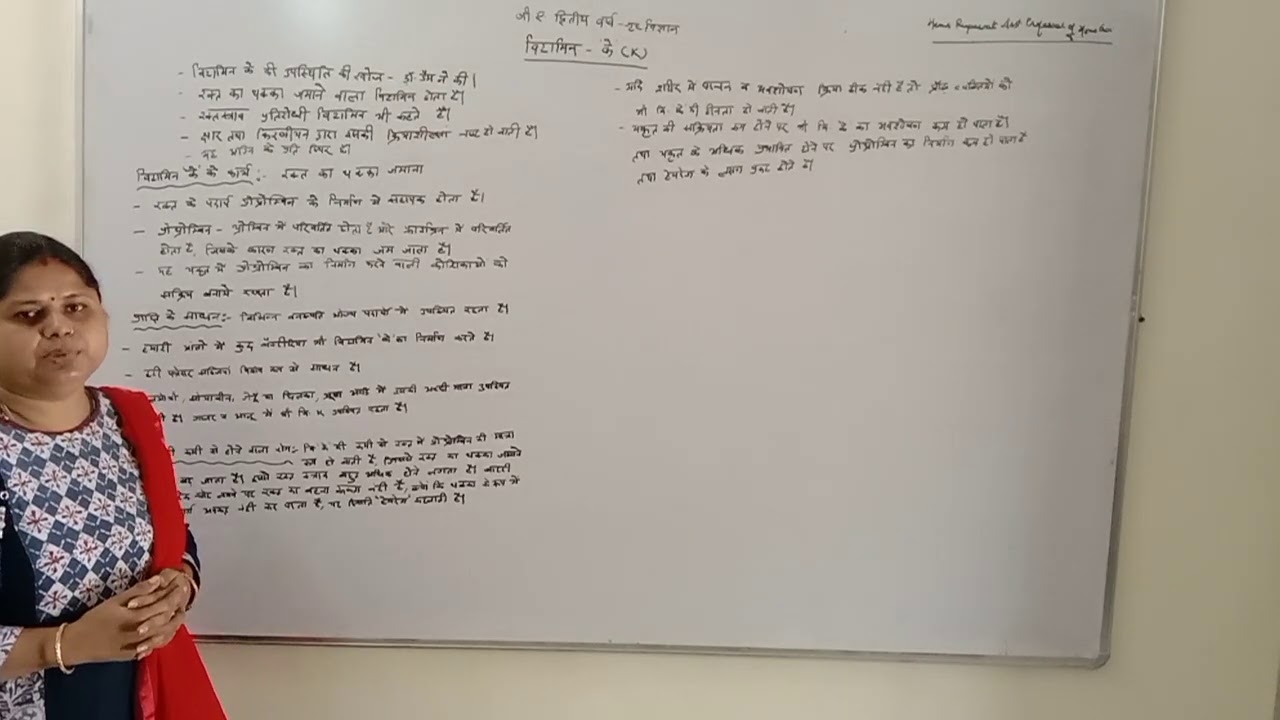 बी ए द्वितीय वर्ष - गृह विज्ञान
विटामिन - के (K)
- विटामिन के की उपस्थिति की खोज - डॉ. डैम ने की।
- रक्त का थक्का जमाने वाला विटामिन होता है।
- रक्तस्त्राव प्रतिरोधी विटामिन भी कहते है।
- क्षार तथा किरणीयन द्वारा इसकी क्रियाशीलता नष्ट हो जाती है।
- यह के प्रति स्थिर है।
विटामिन 'के' के कार्य :- रक्त का थक्का जमाना
- रक्त के पदार्थ प्रोथ्रोम्बिन के निर्माण में सहायक होता है।
- प्रोथ्रोम्बिन - थ्रोम्बिन में परिवर्तित होता है और फाइब्रिन में परिवर्तित
होता है, जिसके कारण रक्त का थक्का जम जाता है।
- यह यकृत में प्रोथ्रोम्बिन का निर्माण करने वाली कोशिकाओं को
सक्रिय बनाये रखता है।
प्राप्ति के साधन :- विभिन्न वनस्पति भोज्य पदार्थों में उपस्थित रहता है।
- हमारी आंतों में कुछ बैक्टीरिया भी विटामिन 'के' का निर्माण करते है।
- हरी पत्तेदार सब्जियां विशेष रूप से साधन है।
सोयाबीन, गेहूं का छिलका, में इसकी अच्छी मात्रा उपस्थित
है। गाजर व आलू में भी वि. K उपस्थित रहता है।
कमी से होने वाला रोग :- वि. के की कमी से रक्त में प्रोथ्रोम्बिन की मात्रा
कम हो जाती है, जिससे रक्त का थक्का जमाने
जाता है। इससे रक्त स्त्राव बहुत अधिक होने लगता है।
चोट लगने पर रक्त का बहना रुकता नहीं है, क्यों कि थक्का के रूप में
नहीं कर पाता है, यह स्थिति कहलाती है।
- यदि शरीर में पाचन व अवशोषण क्रिया ठीक नहीं है तो प्रौढ़ व्यक्तियों को
भी वि. के की हीनता हो जाती है।
- यकृत की सक्रियता कम होने पर भी वि. के का अवशोषण कम हो पाता है।
तथा यकृत के अधिक प्रभावित होने पर प्रोथ्रोम्बिन का निर्माण कम हो पाता है
तथा के लक्षण प्रकट होते है।